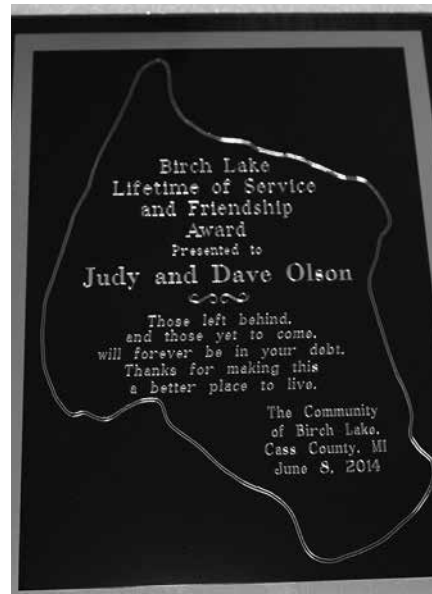 Birch Lake
Lifetime of Service
and Friendship
Award
Presented to
Judy and Dave Olson
Those left behind,
and those yet to come,
will forever be in your debt.
Thanks for making this
a better place to live.
The Community
of Birch Lake,
Cass County, MI
June 8, 2014